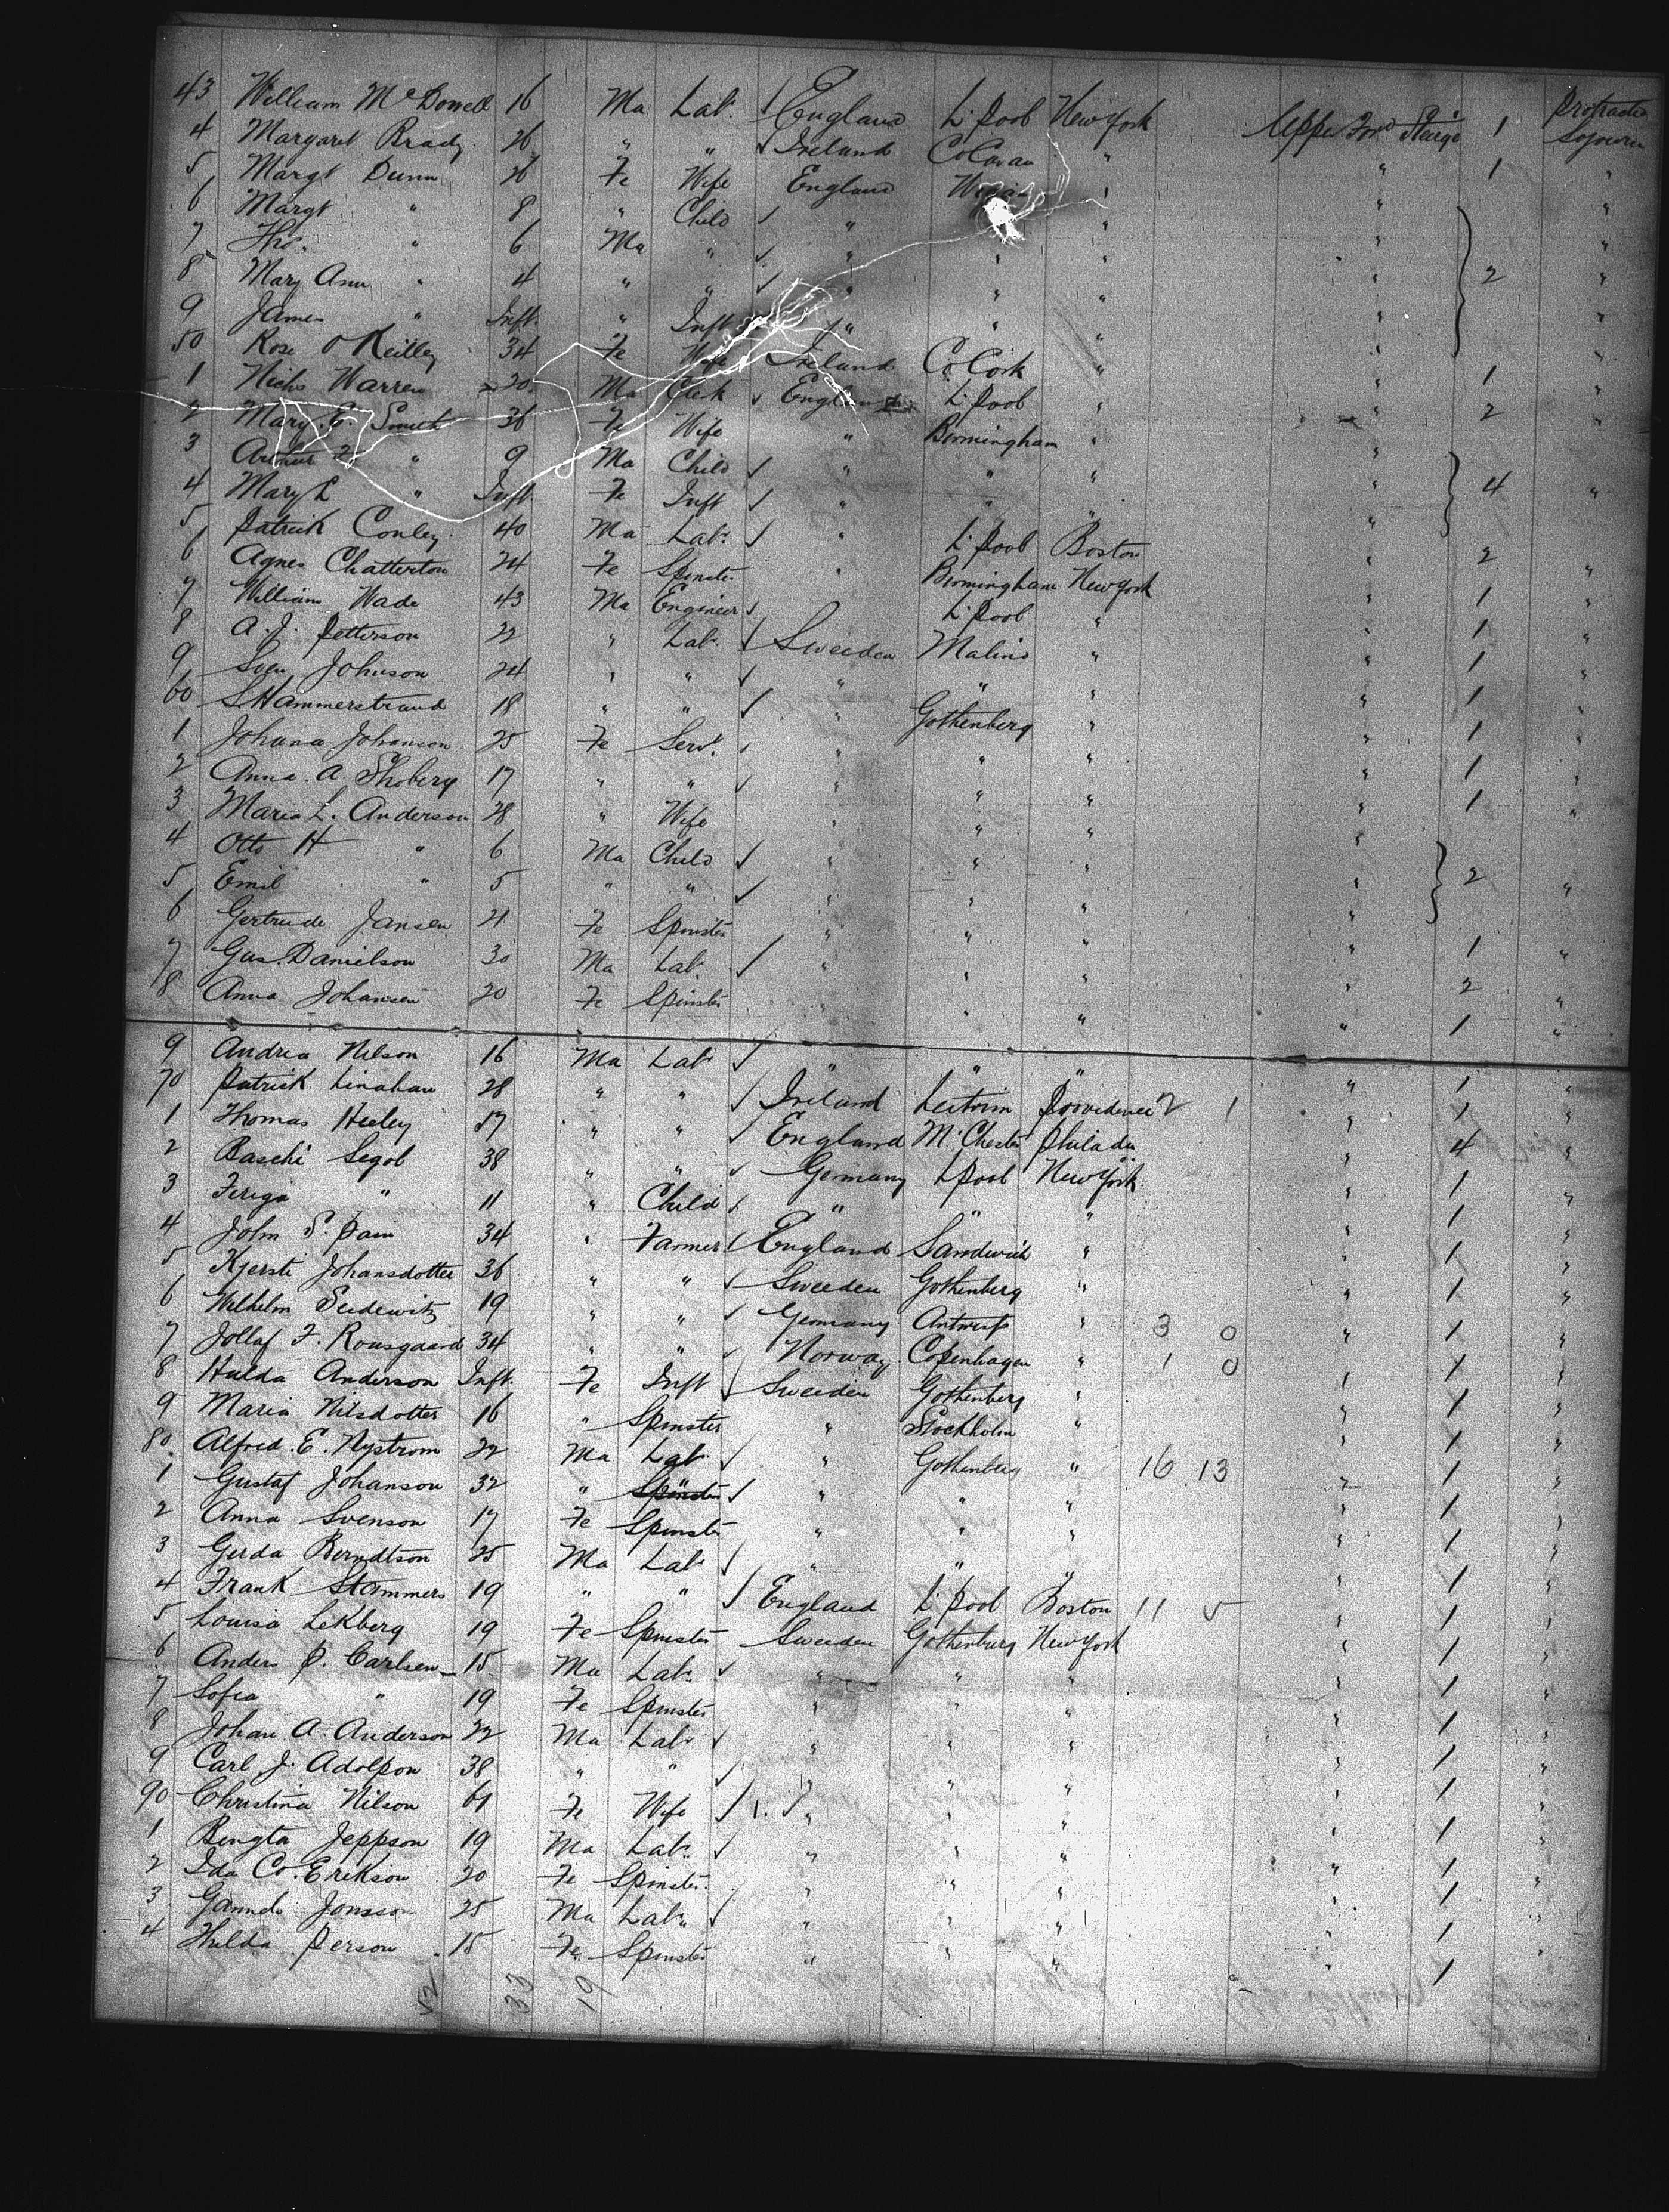 43 William McDowell 16 Ma Labr England L'pool New York Upper Ford Steerge 1 Protracted Sojourn
4 Margaret Brady 26 " " Ireland Co Cavan " " 1 "
5 Margt Dunn 26 Fe Wife England " " "
6 Margt " 8 " Child " " " " "
7 Thos. " 6 Ma " " " " " "
8 Mary Ann " 4 " " " " " " 2 "
9 James " Inft. " Inft " " " " "
50 Rose O'Reilley 34 Fe Wife Ireland Co. Cork " " 1 "
1 Nichs Warren 20 Ma Clerk England L'pool " " 2 "
2 Mary E. Smith 36 Fe Wife " Birmingham " "
3 Arthur F " 9 Ma Child " " " "
4 Mary L " Inft. Fe Inft " " " " 4 "
5 Patrick Conley 40 Ma Labr. " L'pool Boston " 2 "
6 Agnes Chatterton 24 Fe Spinster " Birmingham New York " 1 "
7 William Wade 43 Ma Engineer L'pool " " 1 "
8 A. J. Petterson 22 " Labr. Sweeden Malino " " 1 "
9 Sven Johnson 24 " " " " " " 1 "
60 S Hammerstrand 18 " " " Gothenberg " " 1 "
1 Johana Johanson 25 Fe Servt. " " " " 1 "
2 Anna. A. Shoberg 17 " " " " " " 1 "
3 Maria L. Anderson 28 " Wife " " " "
4 Otto H " 6 Ma Child " " " " 2 "
5 Emil " 5 " " " " " "
6 Gertrude Jansen 21 Fe Spinster " " " " 1 "
7 Gus. Danielson 30 Ma Labr. " " " " 2 "
8 Anna Johansen 20 Fe Spinster " " " 1 "
9 Andrea Nilson 16 Ma Labr " " " " 1 "
70 Patrick Linahan 28 " " Ireland Leitrim Providence 2 1 " 1 "
1 Thomas Heeley 17 " " England M'Chester Philada " 4 "
2 Baschi Segob 38 " " Germany L'pool New York " 1 "
3 Feriga " 11 " Child " " " " 1 "
4 John S. Pain 34 " Farmer England Sandwich " " 1 "
5 Kjersti Johansdotter 36 " " Sweeden Gothenberg " " 1 "
6 Wilhelm Seidewitz 19 " " Germany Antwerp " 3 0 " 1 "
7 Jollaf F. Rousgaard 34 " " Norway Copenhagen " 1 0 " 1 "
8 Hulda Anderson Inft. Fe Inft Sweeden Gothenberg " " 1 "
9 Maria Nilsdotter 16 " Spinster " Stockholm " " 1 "
80 Alfred. E. Nystrom 22 Ma Labr " Gothenberg " 16 13 " 1 "
1 Gustaf Johanson 32 " Spinster " " " " 1 "
2 Anna Svenson 17 Fe Spinster " " " " 1 "
3 Gerda Berndtson 25 Ma Labr " " " " 1 "
4 Frank Stammers 19 " " England L'pool Boston 11 5 " 1 "
5 Louisa Lekberg 19 Fe Spinster Sweeden Gothenburg New York " 1 "
6 Anders P. Carlsen 15 Ma Labr. " " " " 1 "
7 Sofia " 19 Fe Spinster " " " " 1 "
8 Johan A. Anderson 22 Ma Labr " " " " 1 "
9 Carl J. Adolpson 38 " " " " " " 1 "
90 Christina Nilson 61 Fe Wife " " " " 1 "
1 Bengta Jeppson 19 Ma Labr. " " " " 1 "
2 Ida Co. Erikson 20 Fe Spinster. " " " " 1 "
3 Jonsson 25 Ma Labr " " " " 1 "
4 Hulda Person 15 Fe Spinster " " " " 1
52 33 19